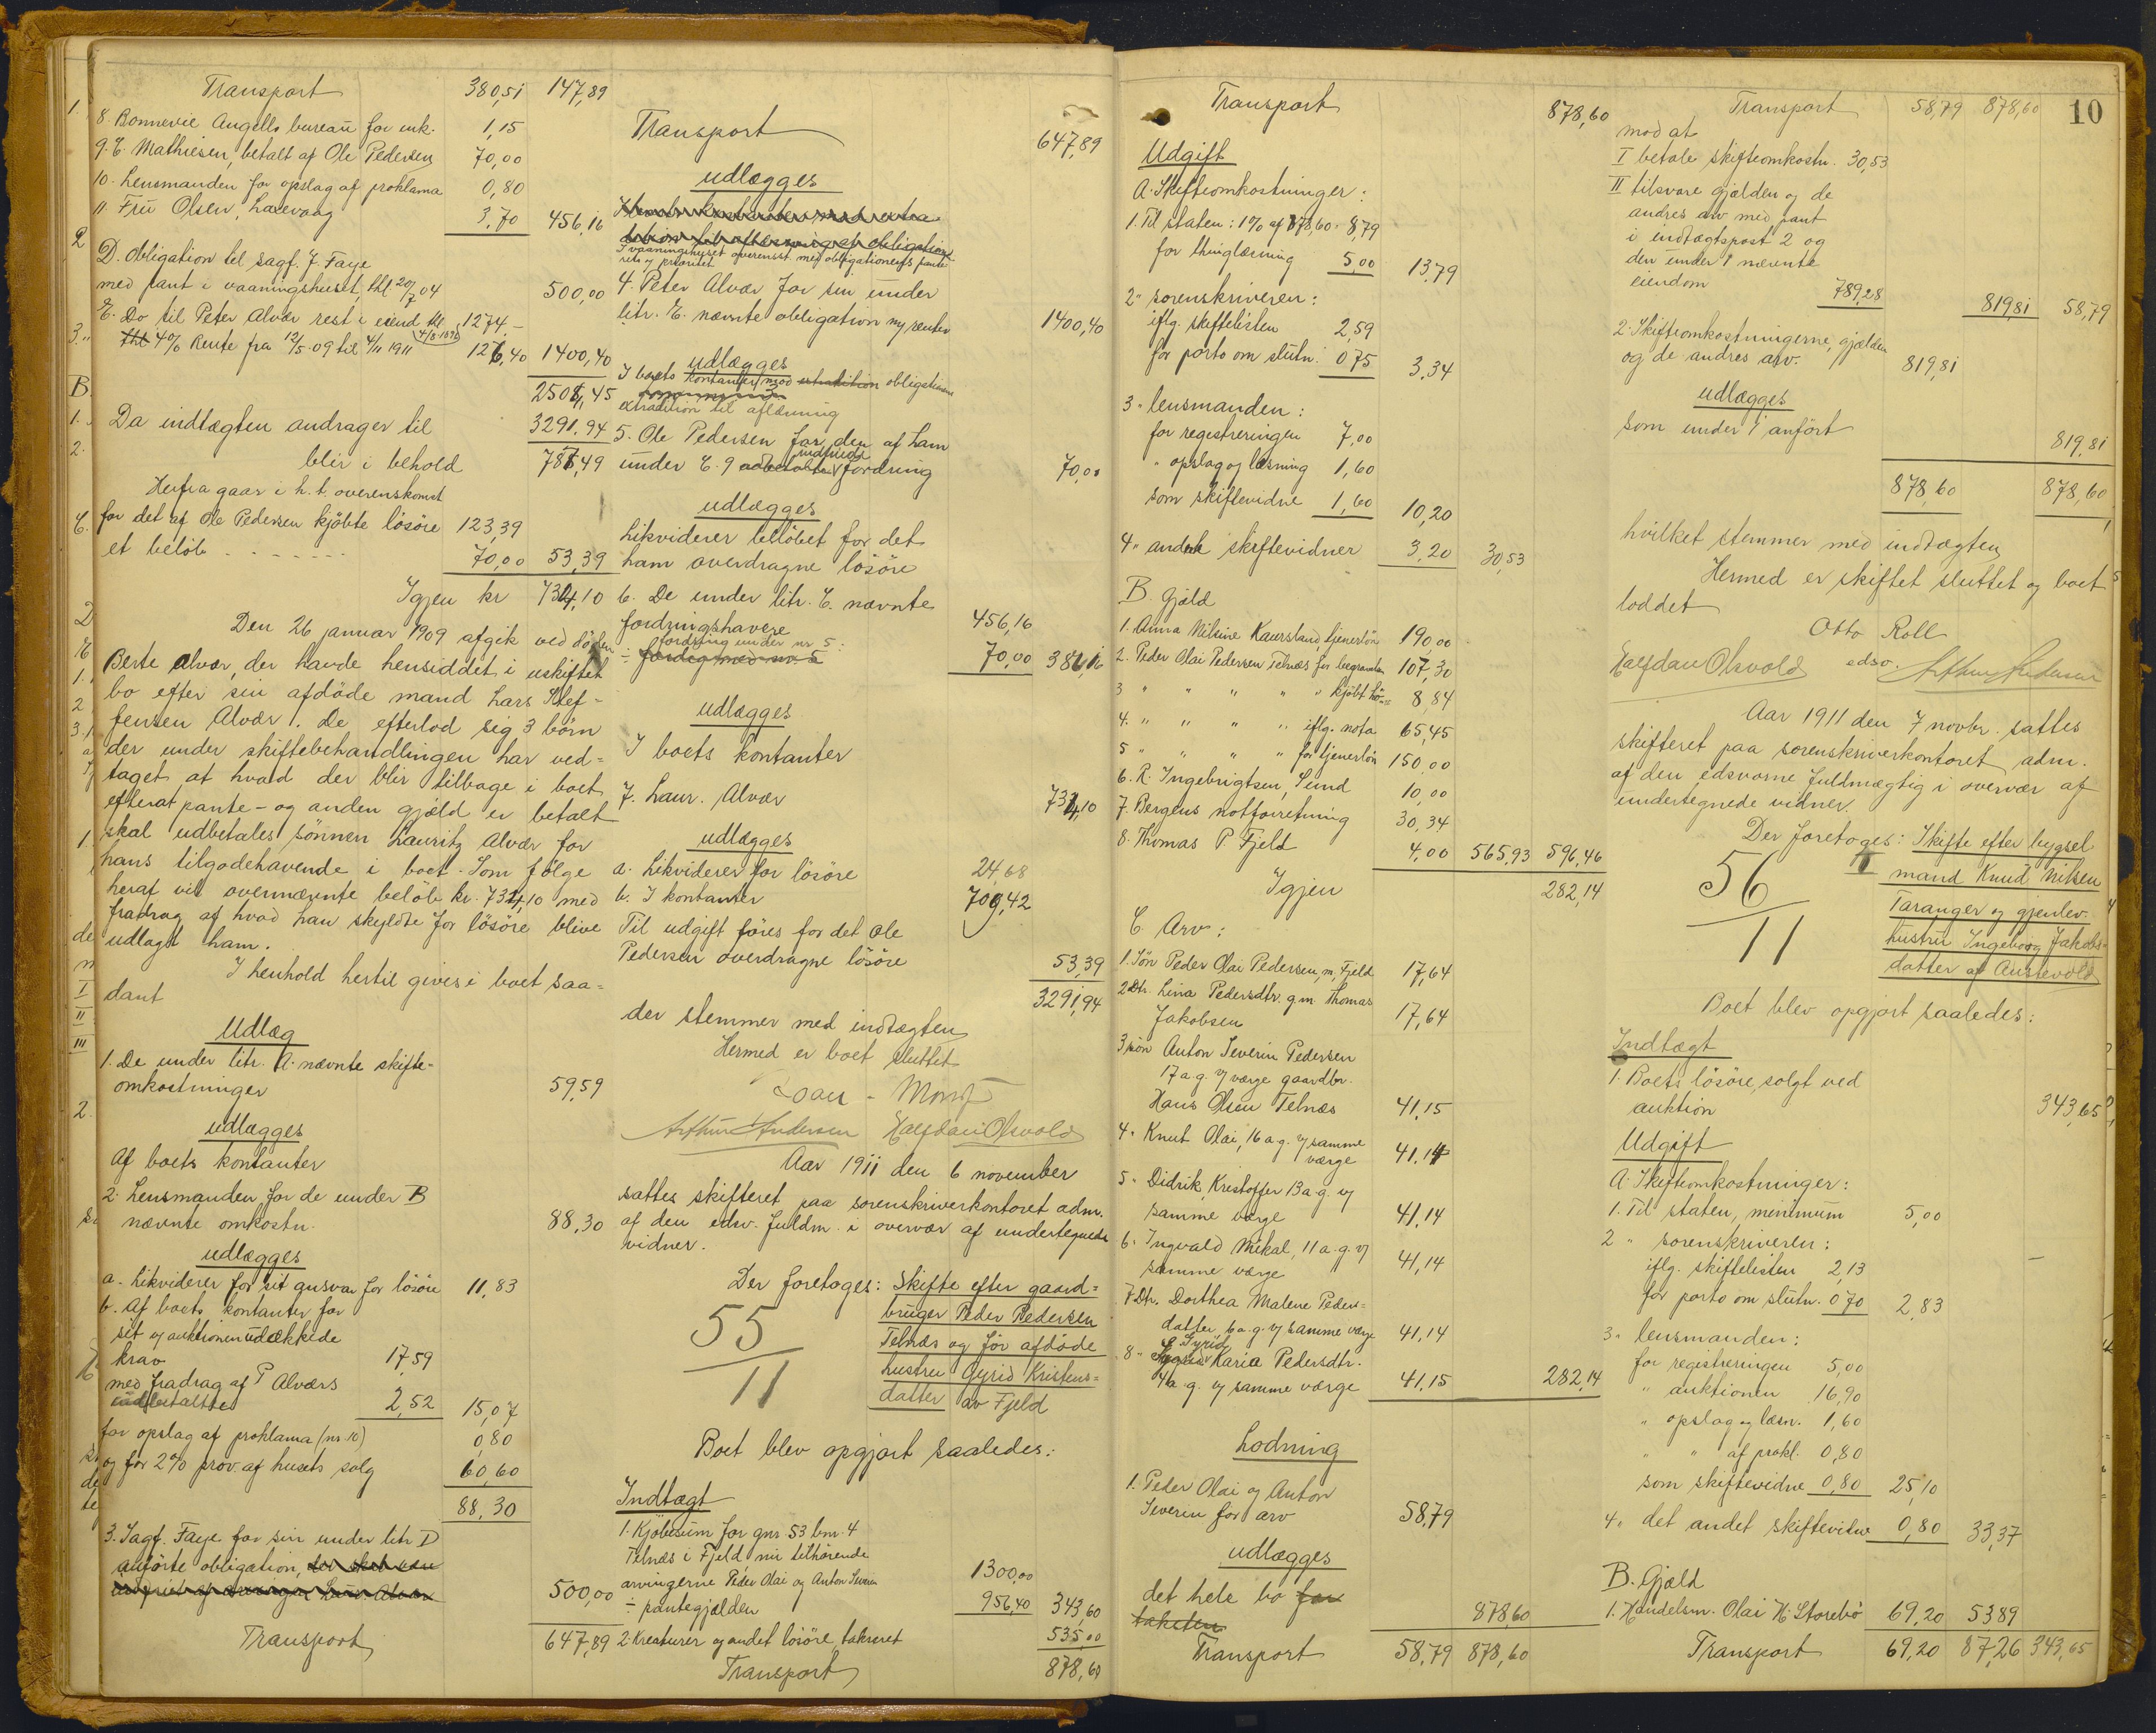 Transport 380,51 147,89
8. Bonnevie Angells bureau for ink. 1,15
9. E. Mathiesen, betalt af Ole Pedersen 70,00
10. Lensmanden for opslag af proklama 0,80
11. Fru Olsen, 3,70 456,16
D. Obligation til sagf. J. Faye
med pant i vaaningshuset, thl 20/7 04 500,00
E. Do til Peter Alvær rest i eiend thl. 1274 -
4% Rente fra 12/5-09 til 4/11 1911 126,40 1400,40
2504,45
Da indtægten andrager til 3291,94
blir i behold 787,49
Herfra gaar i h. t. overenskomst
for det af Ole Pedersen kjöbte lösöre 123,39
et belöb 70,00 53,39
Igjen kr 734,10
Den 26 januar 1909 afgik ved döden
Berte Alvær, der havde hensiddet i uskiftet
bo efter sin afdöde mand Lars Stef-
fensen Alvær. De efterlod sig 3 börn
der under skiftebehandlingen har ved-
taget at hvad der blir tilbage i boet
efterat pante- og anden gjæld er betalt
skal udbetales sönnen Lauritz Alvær for
hans tilgodehavende i boet. Som fölge
heraf vil overnævnte belöb kr. 734,10 med
fradrag af hvad han skyldte for lösöre blive
udlagt ham.
I henhold hertil gives i boet saa-
dant
Udlæg
1. De under litr. A. nævnte skifte-
omkostninger 59,59
udlægges
Af boets kontanter
2. Lensmanden for de under B
nævnte omkostn. 88,30
udlægges
a. Likviderer for sit ansvar for lösöre 11,83
b. Af boets kontanter for
sit v/ auktionen udækkede
krav 17,59
med fradrag af P Alværs
udbetalte 2,52 15,07
for opslag af proklama (nr. 10) 0,80
og for 2% prov. af husets salg 60,60
88,30
3. Sagf. Faye for sin under litr D
anförte obligation, 500,00
Transport 647,89
Transport 647,89
udlægges
I vaaningshuset overensst. med obligationens pante-
ret og prioritet
4. Peter Alvær for sin under
litr. E. nævnte obligation m/ renter 1400,40
udlægges
I boets kontanter mod obligationens
extradition til aflæsning
5. Ole Pedersen for den af ham
under C. 9 indfriede fordring 70,00
udlægges
Likviderer belöbet for det
ham overdragne lösöre
6. De under litr. C. nævnte
fordringshavere 456,16
÷ fordring under nr 5 : 70,00 386,16
udlægges
I boets kontanter
7. Laur. Alvær 734,10
udlægges
a. Likviderer for lösöre 24,68
b. I kontanter 709,42
Til udgift föres for det Ole
Pedersen overdragne lösöre 53,39
3291,94
der stemmer med indtægten
Hermed er boet sluttet
Arthur Andersen Halfdan Olsvold
Aar 1911 den 6 november
sattes skifteret paa sorenskriverkontoret adm.
af den edsv. fuldm. i overvær af undertegnede
vidner.
Der foretoges: Skifte efter gaard-
bruger Peder Pedersen
Telnæs og för afdöde
hustru Gyrid Kristens-
datter av Fjeld
55/11
Boet blev opgjort saaledes:
Indtægt
1. Kjöbesum for gnr 53 bnr. 4
Telnæs i Fjeld nu tilhörende
arvingerne Peder Olai og Anton Severin 1300,00
÷ pantegjælden 956,40 343,60
2 Kreaturer og andet lösöre, takseret 535,00
Transport 878,60
Transport 878,60
Udgift
A. Skifteomkostninger:
1. Til staten: 1% af 878,60 = 8,79
for thinglæsning 5,00 13,79
2" sorenskriveren:
iflg. skiftelisten 2,59
for porto om slutn. 0 75 3,34
3" lensmanden:
for registreringen 7,00
" opslag og læsning 1,60
som skiftevidne 1,60 10,20
4" andre skiftevidner 3,20 30,53
B. Gjæld
1. Anna Nilsine Kaursland tjenerlön 190,00
2. Peder Olai Pedersen Telnæs for begravelse 107,30
3 " " " " " kjöbt hö 8,84
4. " " " " iflg. nota 65,45
5 " " " " for tjenerlön 150,00
6. R. Ingebrigtsen, Sund 10,00
7. Bergens notforretning 30,34
8. Thomas P Fjeld 4,00 565,93 596,46
Igjen 282,14
C Arv:
1. Sön Peder Olai Pedersen, m, Fjeld 17,64
2 Dtr. Lina Pedersdtr. g.m. Thomas
Jakobsen 17,64
3 sön Anton Severin Pedersen
17 a. g. v/ værge gaardbr.
Hans Olsen Telnæs 41,15
4" Knut Olai, 16 a. g. v/ samme
værge 41,14
5" Didrik Kristoffer 13 a. g. v/
samme værge 41,14
6. Ingvald Mikal, 11 a. g. v/
samme værge 41,14
7 Dtr. Dorthea Malene Peders-
datter, 6 a. g. v/ samme værge 41,14
8" Gyrid Karia Pedersdtr.
4 a. g. v/ samme værge 41,15 282,14
Lodning
1. Peder Olai og Anton
Severin for arv 58,79
udlægges
det hele bo for
taksten 878,60
Transport 58,79 878,60
Transport 58,79 878,60 10
mod at
I betale skifteomkostn. 30,53
II tilsvare gjælden og de
andres arv med pant
i indtægtspost 2 og
den under 1 nævnte
eiendom 789,28 819,81 58,79
2. Skifteomkostningerne, gjælden
og de andres arv. 819,81
udlægges
som under 1 anfört 819,81
878,60 878,60
hvilket stemmer med indtægten
Hermed er skiftet sluttet og boet
loddet
Otto Roll
edsv.
Halfdan Olsvold Arthur Andersen
Aar 1911 den 7 novbr. sattes
skifteret paa sorenskriverkontoret adm.
af den edsvorne fuldmægtig i overvær af
undertegnede vidner.
Der foretoges: Skifte efter bygsel-
mand Knud Nilsen
Taranger og gjenlev.
hustru Ingeborg Jakobs-
datter af Austevold
56/11
Boet blev opgjort saaledes:
Indtægt
1. Boets lösöre, solgt ved
auktion 343,65
Udgift
A. Skifteomkostninger:
1. Til staten, minimum 5,00
2 " sorenskriveren:
iflg. skiftelisten 2,13
for porto om slutn. 0 70 2,83
3" lensmanden:
for registreringen 5,00
" auktionen 16,90
" opslag og læsn. 1,60
" " af prokl. 0,80
som skiftevidne 0,80 25,10
4" det andet skiftevidne 0,80 33,37
B. Gjæld
1. Handelsm. Olai H. Storebö 69,20 53 89
Transport 69,20 87,26 343,65